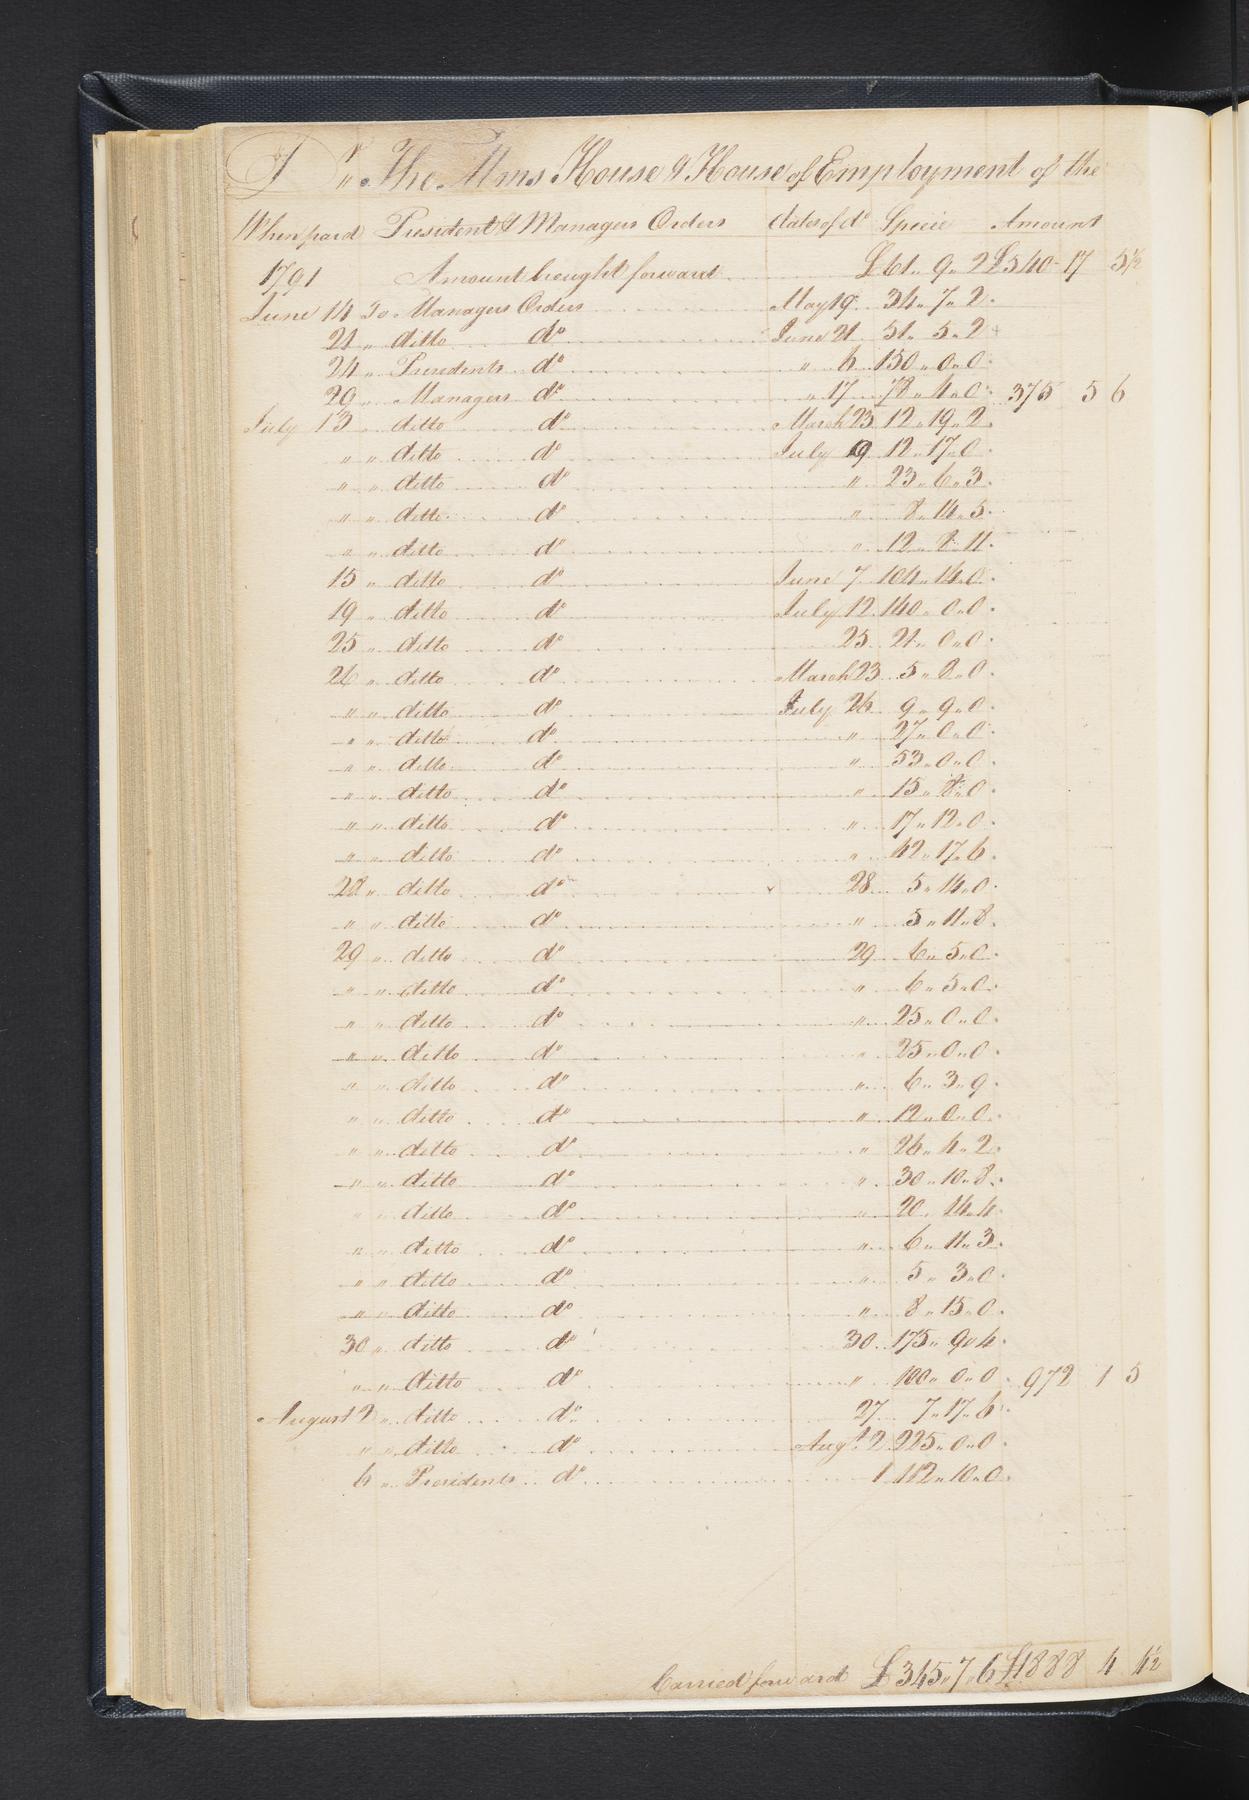 Dr. The Alms House & House of Employment of the
When paid President & Managers Orders dates of do Specie Amount
1791 Amount brought forward £61..9..2 £540-17 5½
June 14 To Managers Orders May 19 34..7..2
21 " ditto do June 21 51..5..2
24 " Presidents do " 6 150..0..0
29 " Managers do " 17 78..4..0 375 5 6
July 13 " ditto do March 23 12..19..2
" " ditto do July 9 12..17..0
" " ditto do " 23..6..3
" " ditto do " 8..14..5
" " ditto do " 12..8..11
15 " ditto do June 7 104..14..0
19 " ditto do July 12 140..0..0
25 " ditto do 25 21..0..0
26 " ditto do March 23 5..8..0
" " ditto do July 26 9..9..0
" " ditto do " 27..0..0
" " ditto do " 53..0..0
" " ditto do " 15..8..0
" " ditto do " 17..12..0
" " ditto do " 42..17..6
28 " ditto do 28 5..14..0
" " ditto do " 5..11..8
29 " ditto do 29 6..5..0
" " ditto do " 6..5..0
" " ditto do " 25..0..0
" " ditto do " 25..0..0
" " ditto do " 6..3..9
" " ditto do " 12..0..0
" " ditto do " 26..4..2
" " ditto do " 30..10..8
" " ditto do " 20..14..4
" " ditto do " 6..11..3
" " ditto do " 5..3..0
" " ditto do " 8..15..0
30 " ditto do 30 175..9..4
" " ditto do " 100..0..0 972 1 5
August 2 " ditto do 27 7..17..6
" " ditto do Augt. 2 225..0..0
6 " Presidents do 1 112..10..0
Carried forward £345..7..6 £1888 4 4½